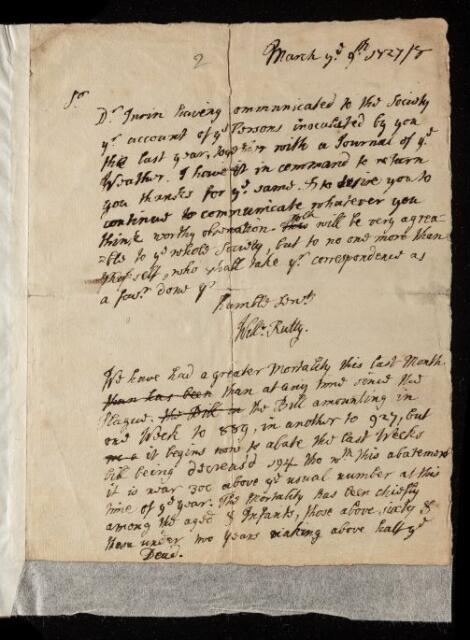 2
March ye 9th 1727/8
Sr
Dr Jurin having communicated to the Society
yr account of ye Persons inoculated by you
the last year, together with a Journal of ye
Weather. I have it in command to return
you thanks for ye same. & to desire you to
continue to communicate whatever you
think worthy observation. wch will be very agrea-
-ble to ye whole Society, but to no one more than
self, who shall take yr correspondence as
a favr. done yr
humble Servt
Will: Rutty.
We have had a greater Mortality this last Month
than has been than at any time since the
Plague. the Bill in the Bill amounting in
one Week to 889, in another to 927, but
it begins now to abate the last Weeks
bill being decreas'd 194 tho wth this abatement
it is near 300 above ye usual number at this
time of ye year. The Mortality has been chiefly
among the aged & Infants, those above sixty &
them under two years making above half ye
Dead.